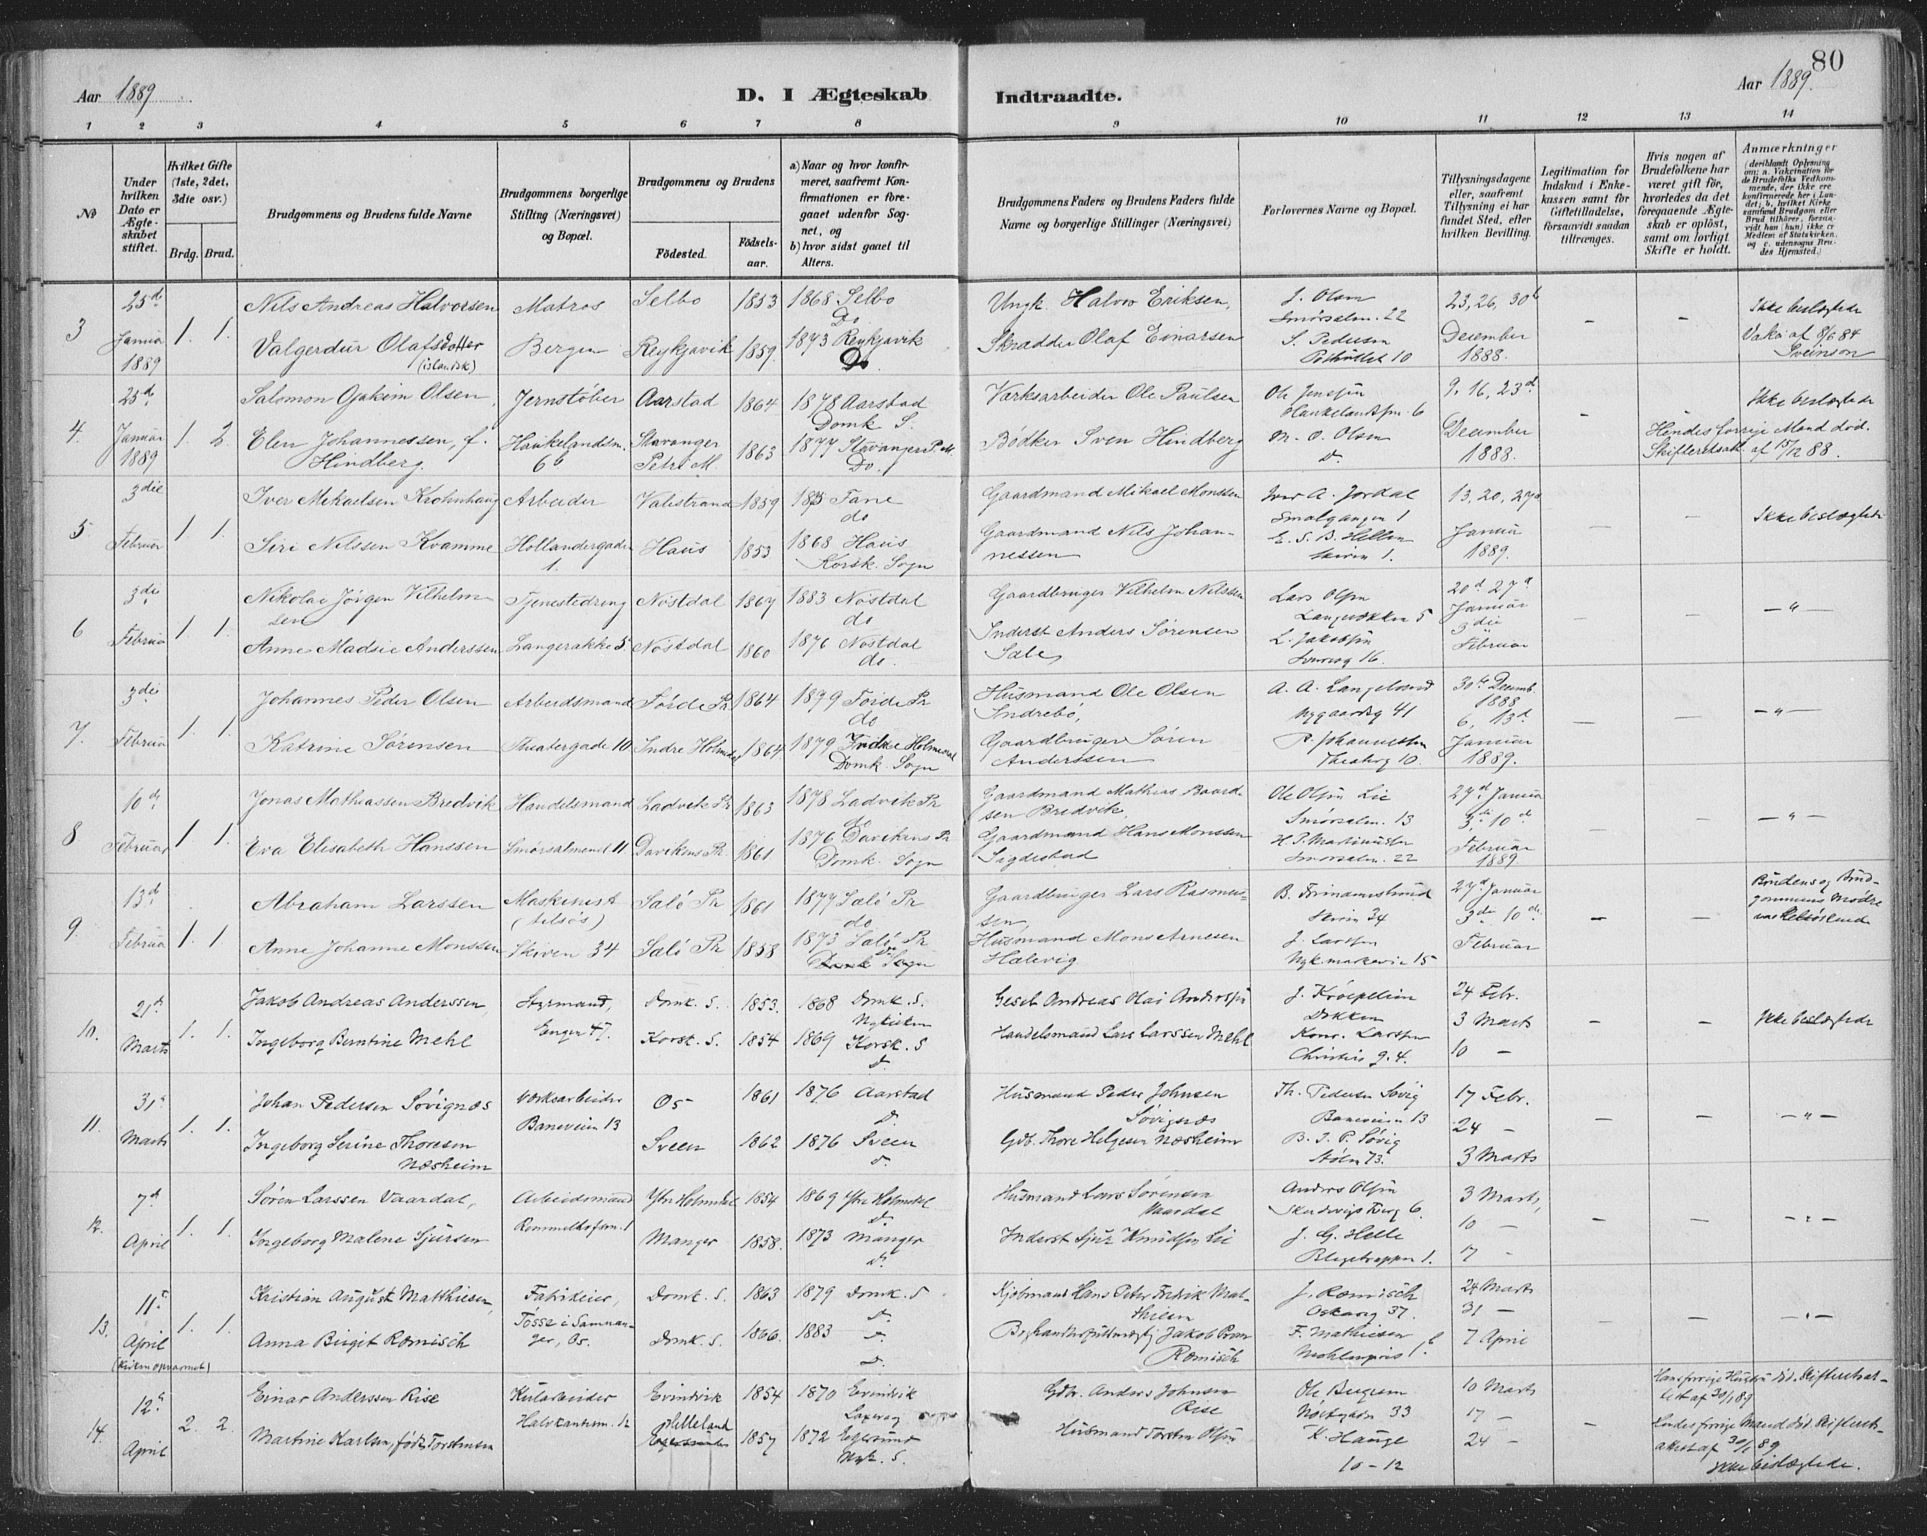 80
Aar 1889
D. I Ægteskab
Indtraadte.
Aar 1889.
1 2 3 4 5 6 7 8 9 10 11 12 13 14
No
Under hvilken Dato er Ægteskabet stiftet.
Hvilket Gifte (1ste, 2det, 3die osv.)
Brdg. Brud.
Brudgommens og Brudens fulde Navne
Brudgommens borgerlige Stilling (Næringsvei) og Bopæl.
Brudgommens og Brudens
Födested.
Födsels-aar.
a) Naar og hvor konfirmeret, saafremt Konfirmationen er foregaaet udenfor Sognet, og
b) hvor sidst gaaet til Alters.
Brudgommens Faders og Brudens Faders fulde Navne og borgerlige Stillinger (Næringsvei)
Forlovernes Navne og Bopæl.
Tillysningsdagene eller, saafremt Tillysning ei har fundet Sted, efter hvilken Bevilling.
Legitimation for Indskud i Enkekassen samt for Giftetilladelse, forsaavidt saadan tiltrænges.
Hvis nogen af Brudefolkene har været gift för, hvorledes da det foregaaende Ægteskab er oplöst, samt om lovligt Skifte er holdt.
Anmærkninger
(deriblandt Oplysning om: a. Vakcination for de Brudefolks Vedkommende, der ikke ere konfirmerede her i Landet; b. hvilket Kirkesamfund Brudgom eller Brud tilhörer, forsaavidt han (hun) ikke er Medlem af Statskirken, og c. udensogns Brudes Hjemsted.)
3 25d Januar 1889 1. 1.
Nils Andreas Halvorsen Matros Selbo 1853 1868 Selbo Do
Ungk. Halvor Eriksen, J. Olsen Smørsalm. 22 23, 26, 30 Ikke beslægtede
Valgerdur Olafsdotter (islandsk) Bergen Reykjavik 1859. 1873 Reykjavik Do.
Skrædder Olaf Einarsen S. Pedersen 10 Desember 1888. Vaks. af 8/6 84 Sveinson
4. 25d Januar 1889 1. 2.
Salomon Ojakim Olsen, Jernstøber Aarstad 1864 1878 Aarstad Domk. S.
Værksarbeider Ole Paulsen Ole 6 9, 16, 23d Ikke beslægtede
Elen Johannessen, f. Hindberg. Haukelandsm. 6b Stavanger Petri M. 1863 1877 Stavanger P. M. Do.
Bødker Sven Hindberg M. O. Olsen Desember 1888. Hendes forrige Mand død. Skifteretsatt. af 15/12 88.
5. 3die Februar 1 1.
Iver Mikaelsen Krohnhaug Arbeider Valestrand 1859 1875 Fane do
Gaardmand Mikael Monssen Iver A. Jordal Smalgangen 1 13, 20, 27d Ikke beslægtede
Siri Nilssen Kvamme Hollandergaden 1. Haus 1853 1868 Haus Korsk. Sogn
Gaardmand Nils Johannessen E. S. B. Hellen Skiven 1. Januar 1889.
6 3die Februar 1 1.
Nikolai Jørgen Vilhelmsen Tjenestedreng Nøstdal 1867 1883 Nøstdal do
Gaardbruger Vilhelm Nilssen Lars Olsen 5 20d 27d Januar — " —
Anne Madsie Anderssen Langerække 5 Nøstdal 1860 1876 Nøstdal do.
Inderst Anders Sørensen Sale L. Jakobsen 16. 3die Februar
7. 3die Februar 1 1.
Johannes Peder Olsen Arbeidsmand Førde Pr 1864 1879 Førde Pr do
Husmand Ole Olsen Indrebø, A. A. Langeland Nygaardsg 41 30te Decemb. 1888 6, 13d — " —
Katrine Sørensen Theatergade 10 Indre Holmedal 1864 1879 Indre Holmedal Domk. Sogn
Gaardbruger Søren Anderssen P. Johannessen Theaterg 10. Januar 1889.
8 10de Februar 1 1.
Jonas Mathiassen Bredvik Handelsmand Ladvik Pr 1863 1878 Ladvik Pr do
Gaardmand Mathias Baardsen Bredvik, Ole Olsen Lie Smørsalm. 13 27d Januar 3de 10de — " —
Eva Elisabeth Hanssen Smørsalmend 11 Davikens Pr. 1861 1876 Davikens Pr Domk. Sogn
Gaardmand Hans Monssen Sigdestad H. P. Martinussen Smørsalm. 22 Februar 1889
9. 13d Februar 1 1.
Abraham Larssen Maskinist Salø Pr 1861 1877 Salø Pr do
Gaardbruger Lars Rasmussen, B. Skiven 34 27d Januar 3de 10de Brudens og Brudgommens Mødre var Halvsøskende
Anne Johanne Monssen Skiven 34 Salø Pr 1858 1873 Salø Pr Domk Sogn
Husmand Mons Arnesen Halevig J. Larssen Nykmarkevei 15 Februar
10. 21d Marts 1. 1.
Jakob Andreas Anderssen, Styrmand, Domk. S. 1853. 1868 Domk. S. Nykirken
Gesel Andreas Olai Anderssen J. Krøepelien Dokken 24 Febr. 3 Marts Ikke beslægtede
Ingeborg Berntine Mehl Engen 47. Korsk. S. 1854 1869 Korsk. S d.
Handelsmand Lars Larssen Mehl Konr. Larssen Christies g. 4. 10 —
11. 31d Marts 1. 1.
Johan Pedersen Søvignæs Værksarbeider Os 1861 1876 Aarstad d.
Husmand Peder Johnsen Søvignæs Th. Pedersen Søvig Baneveien 13 17 Febr. 24 — — " —
Ingeborg Serine Thoresen Næsheim Baneveien 13 Sveen 1862 1876 Sveen d.
Gdb. Thore Helgesen Næsheim B. J. P. Søvig Stølen 73. 3 Marts
12. 7d April 1. 1.
Søren Larssen Vaardal, Arbeidsmand Ytre Holmedal 1854 1869 Ytre Holmedal d.
Husmand Lars Sørensen Vardal Anders Olsen 6. 3 Marts, 10 —
Ingeborg Malene Sjursen 1 Manger 1858. 1873 Manger d.
Inderst Sjur Knudsen Lie J. G. Helle 1. 17 —
13. 11te April (Kirken opvarmet) 1. 1.
Kristian August Matthiesen, Fabrikeier, Domk. S. 1863 1879 Domk. S d.
Kjøbmand Hans Peter Fredrik Mathiesen J. Rømisch 37. 24 Marts 31 —
Anna Birgit Rømisch Tøsse i Samnanger, Os. Domk. S. 1866. 1883 d.
Jakob Rømisch F. Mathiesen Møhlenpris 1. 7 April
14. 12te April 2. 2.
Einar Anderssen Rise Kularbeider Evindvik 1854 1870 Evindvik
Gdbr. Anders Johnsen Rise Ole 33 10 Marts 17 — Hans forrige Hustru død. Skifteretsattest af 30/1 89
Martine Karlsen, født Torstensen Helleland 1857 1872 Egersund Nyk. S.
Husmand Torsten Olsen K. Hauge 10-12 24 — Hendes forrige Mand død. Skifteretsattest af 30/1 89
Ikke beslægtede.